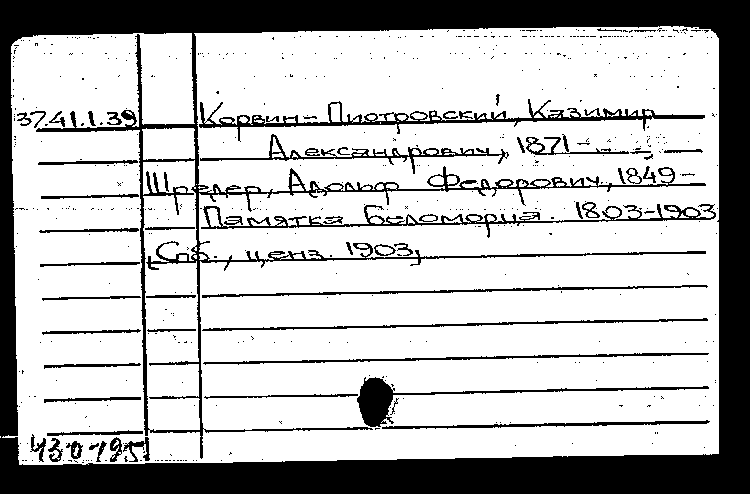 37.41.1.39 Корвин-Пиотровский, Казимир
Александрович, 1871-
Шредер, Адольф Федорович, 1849-
Памятка беломорца. 1803-1903
[Спб., ценз. 1903]
430-195